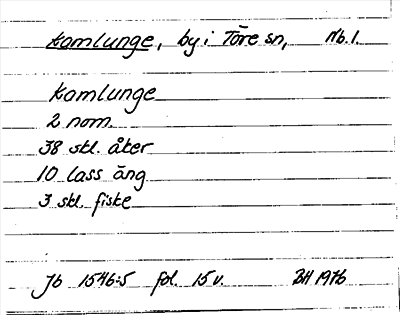 Kamlunge, by i Töre sn, Nb.l.
Kamlunge
2 nom.
38 skl. åker
10 lass äng
3 skl. fiske
Jb 1546:5 fol. 15 v. BH 1976